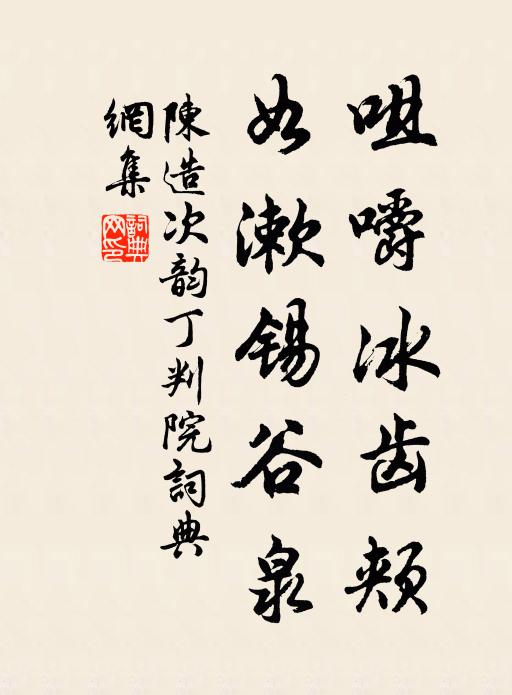 咀嚼冰齿颊
如漱锡谷泉
陳造次韵丁判院詞典
網集
詞典網印